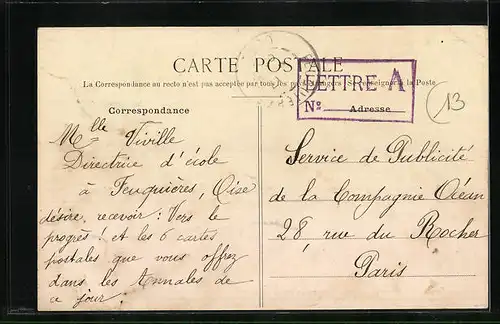 CARTE POSTALE
La Correspondance au recto n'est pas acceptée par tous les pays étrangers. Se renseigner à la Poste
LETTRE A
No
Correspondance
Adresse
13
Mlle Viville
Directrice d'école
à Feuquières, Oise
désire, recevoir : Vers le
progrès ! et les 6 cartes
postales que vous offrez
dans les Annales de
ce jour.
Service de Publicité
de la Compagnie Océan
28, rue du Rocher
Paris